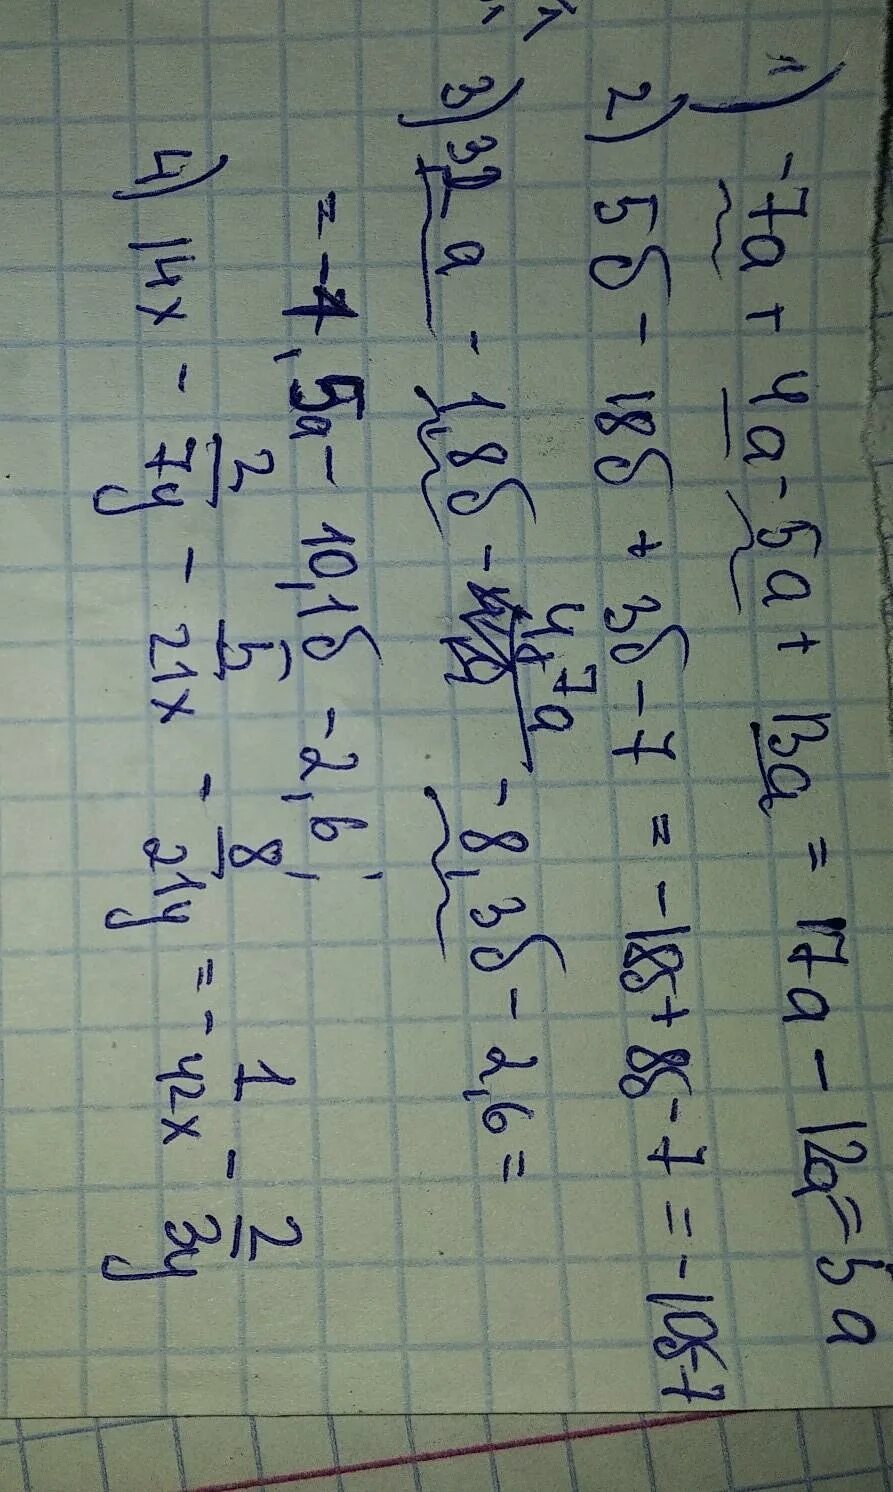 1) -7a + 4a - 5a + 13a = 17a - 12a = 5a
2) 5б - 18б + 3б - 7 = -18б + 8б - 7 = -10б-7
3) 32a - 1,8б - 4,7a - 8,3б - 2,6 =
= -1,5a - 10,1б - 2,6;
4) 14x - 2/7y - 5/21x - 8/21y = - 1/42x - 2/3y